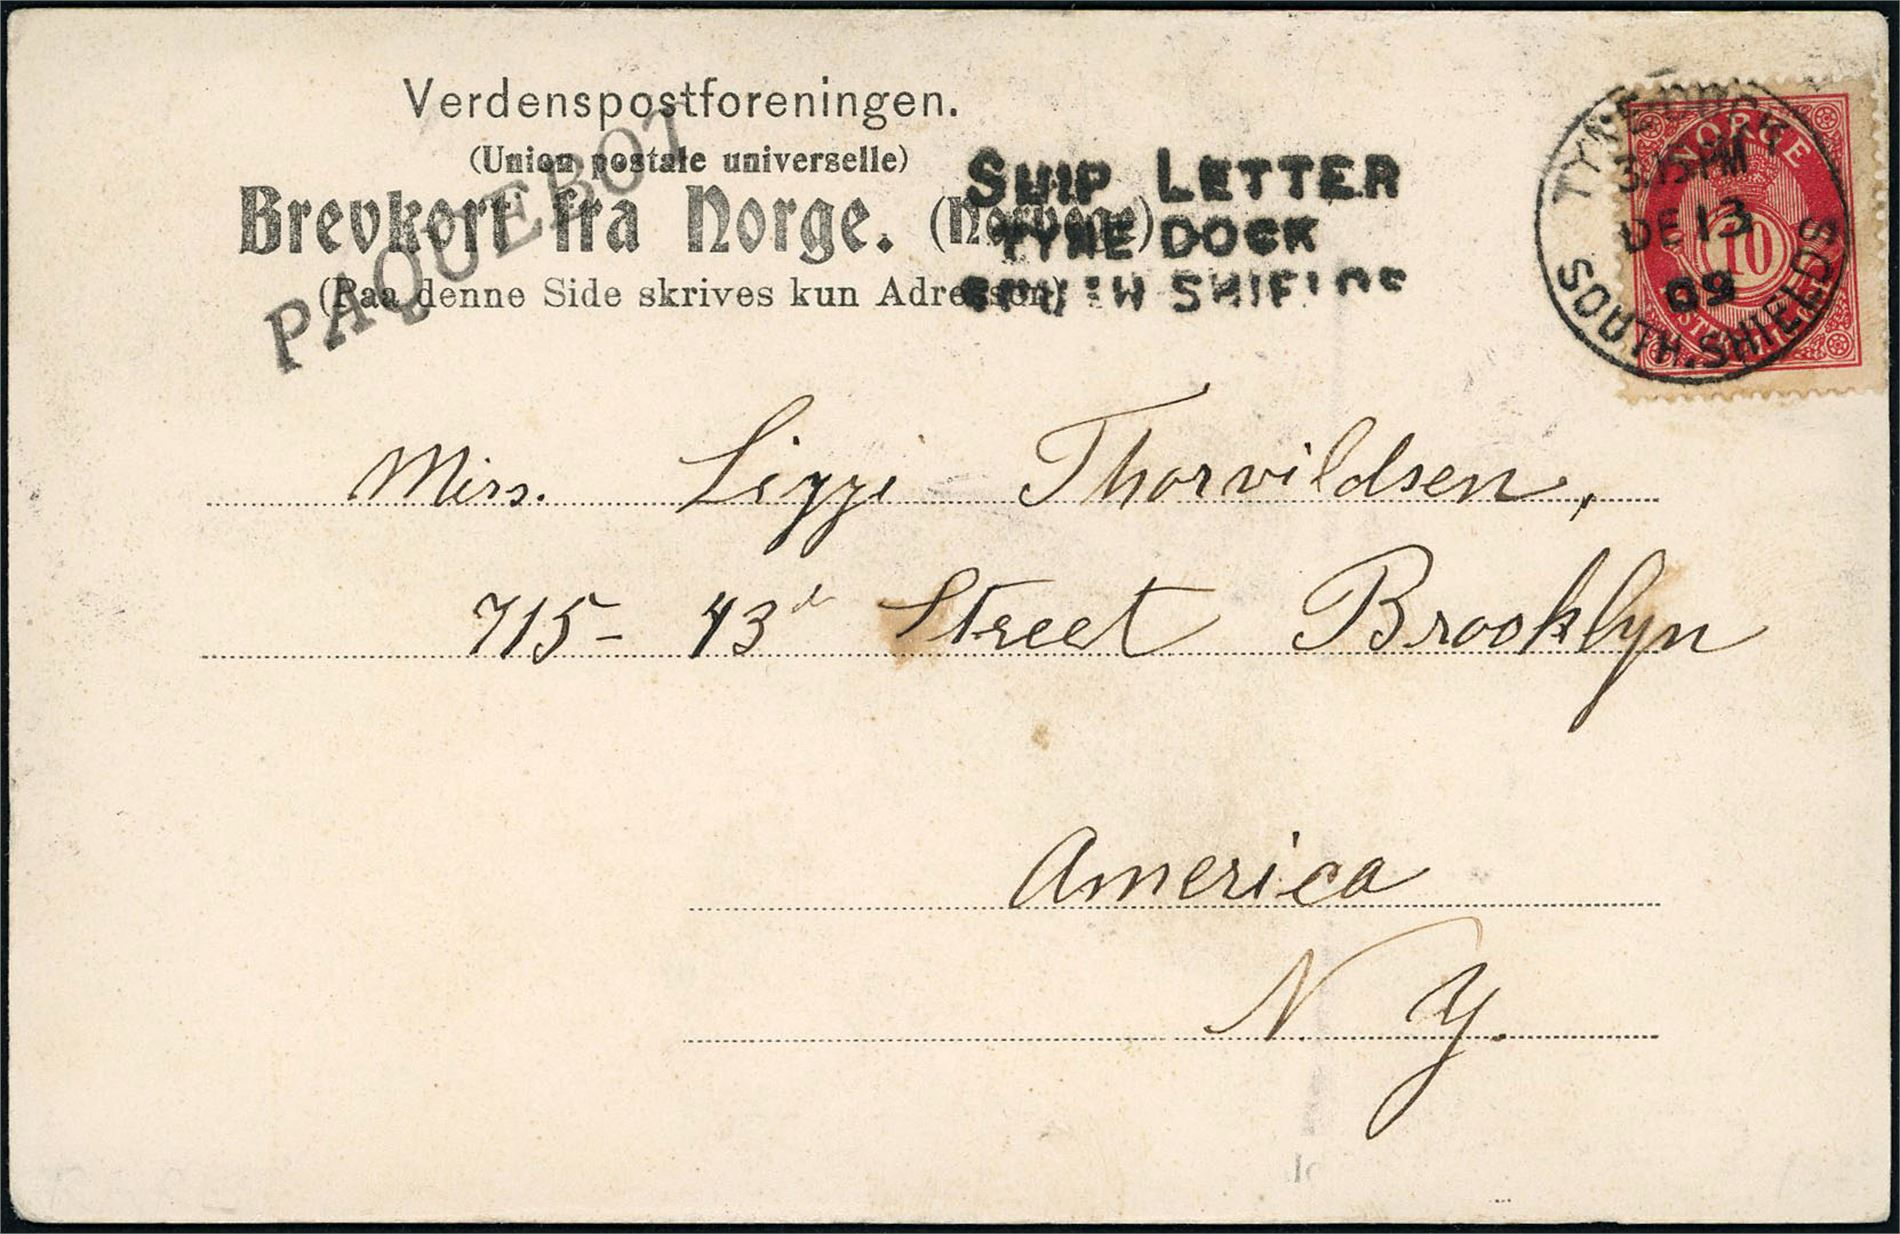 Verdenspostforeningen.
(Union postale universelle)
Brevkort fra Norge. (Norvège)
(Paa denne Side skrives kun Adressen)
PAQUEBOT
SHIP LETTER
TYNE DOCK
SOUTH SHIELDS
TYNE DOCK
3.15 PM
DE 13
09
SOUTH. SHIELDS
NORGE
10
Miss. Lizzi Thorvildsen,
715- 43d Street Brooklyn
America
N. Y.